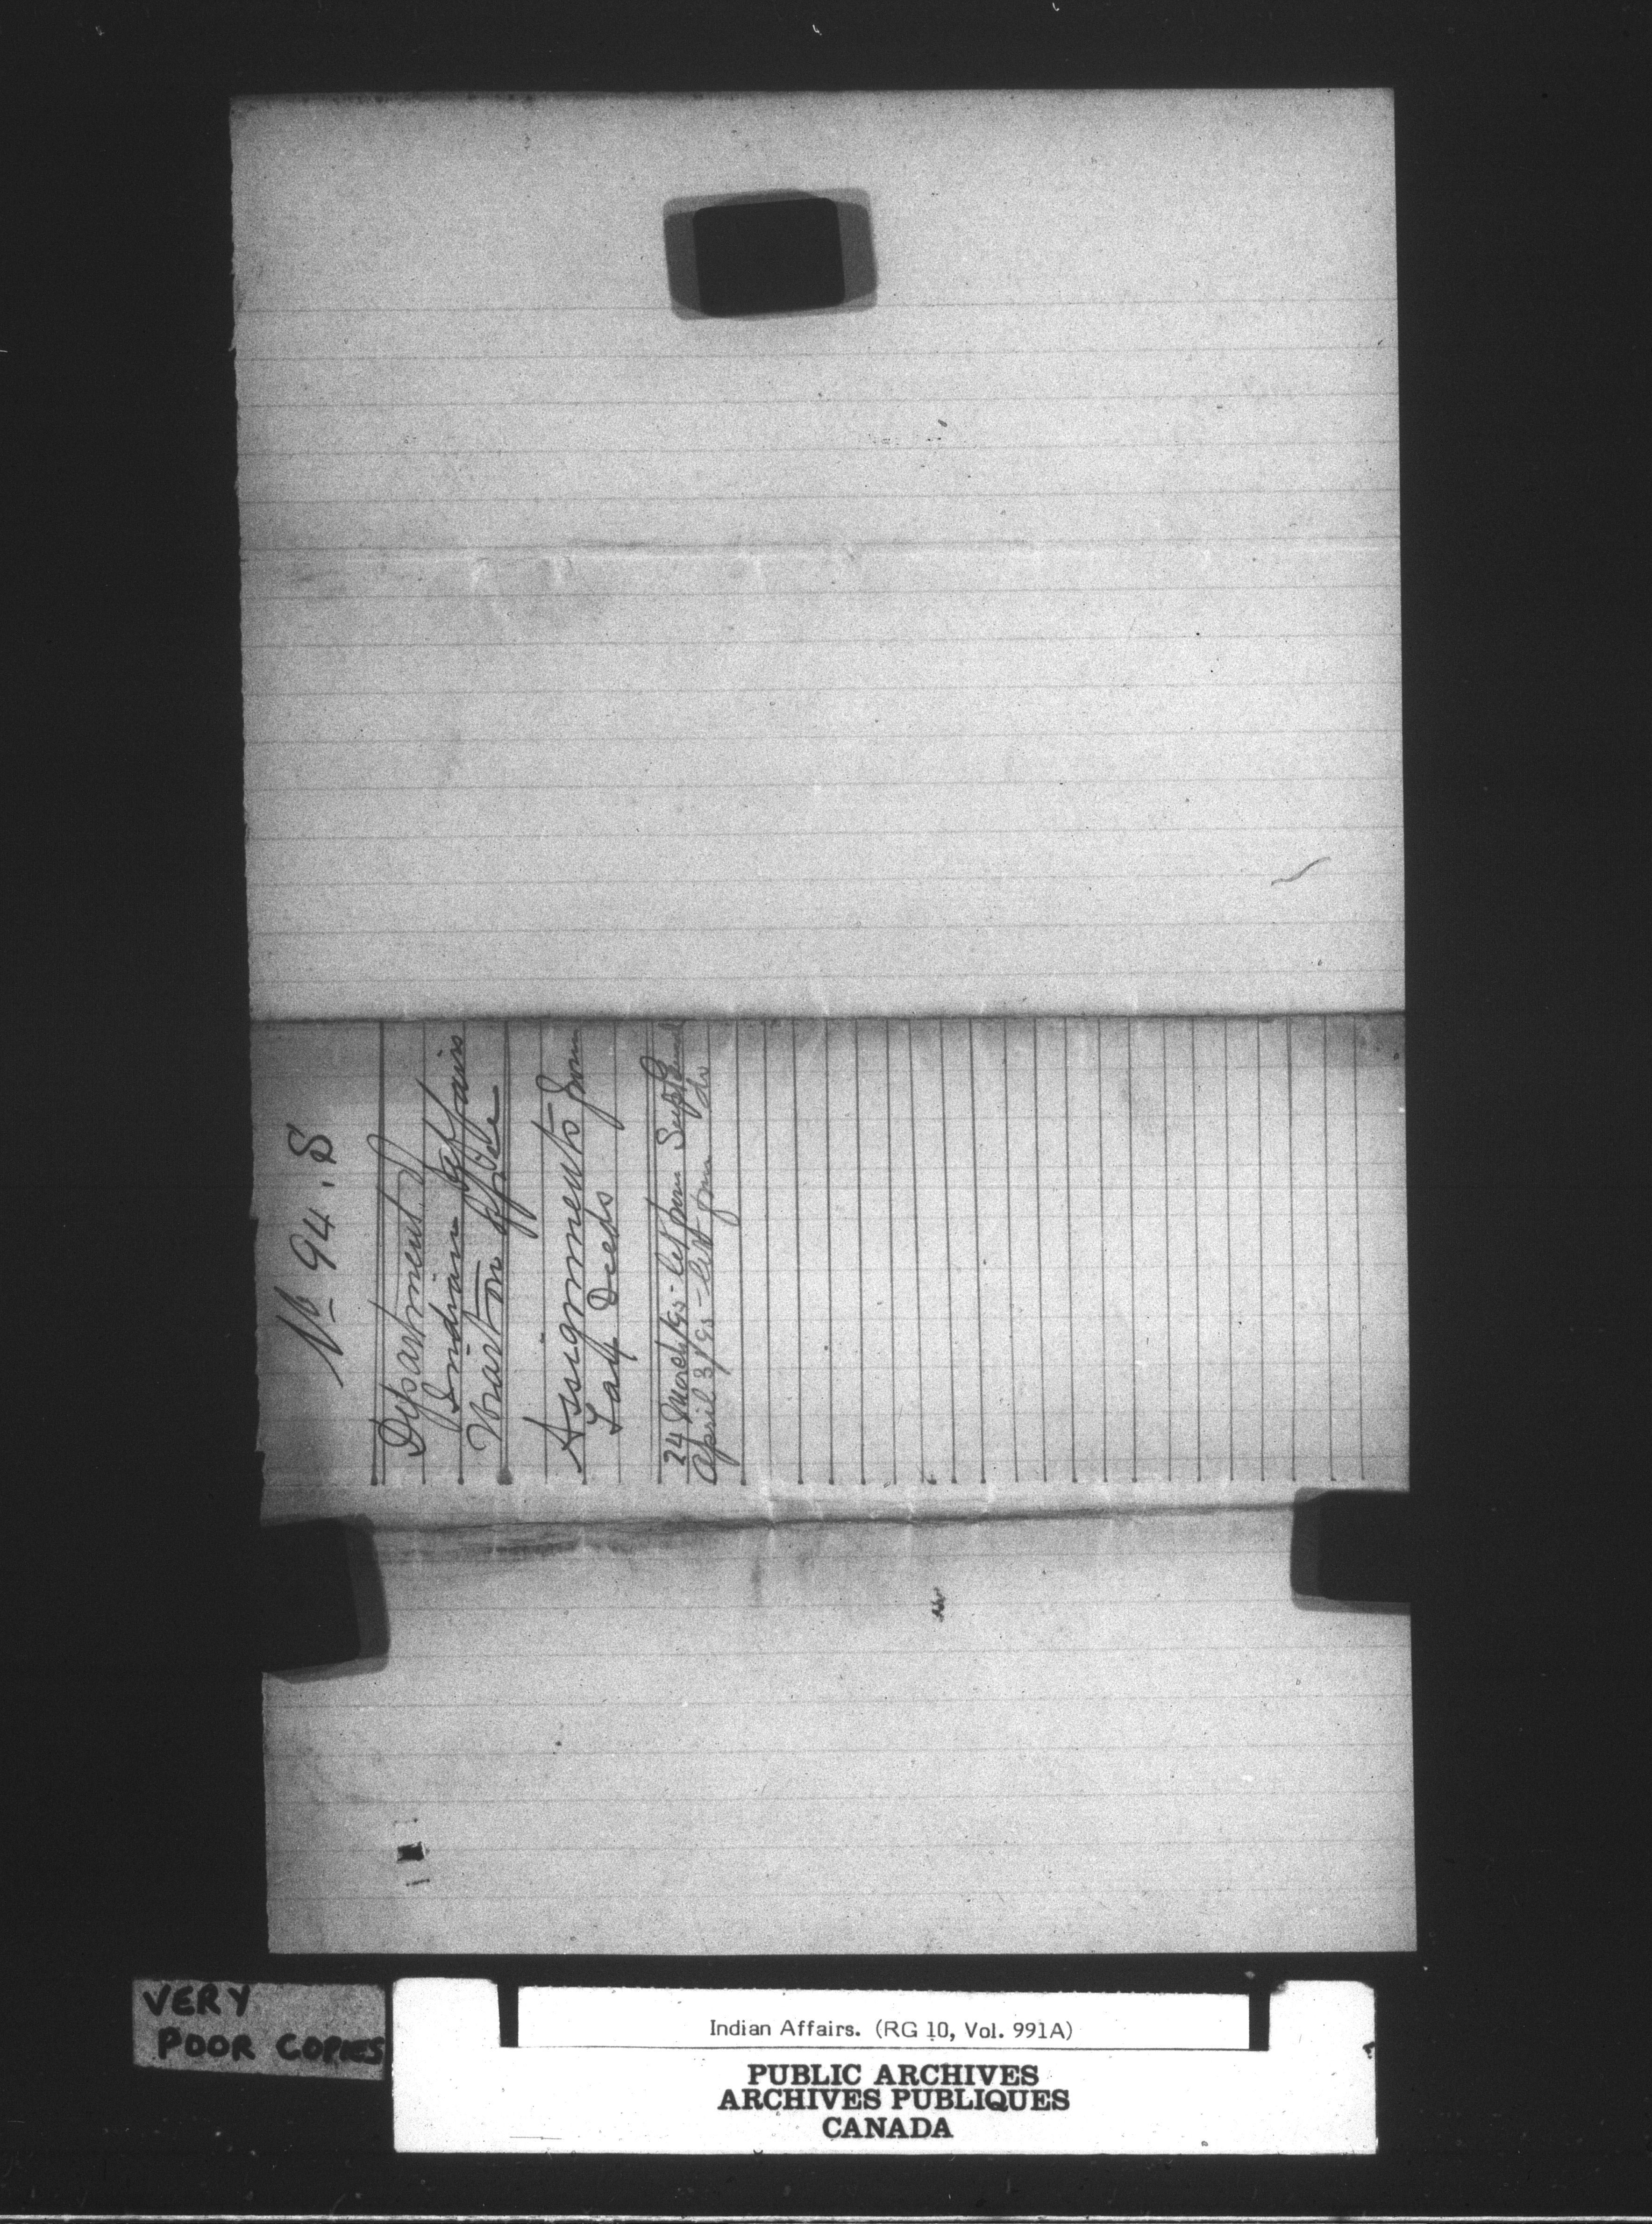 No 94.S
Department
Indian Affairs
Wiarton Office
Assignments from
Land Deeds
24 March / 93 - let from Supt
April 3 / 93 - let from do
VERY
POOR COPIES
Indian Affairs. (RG 10, Vol. 991A)
PUBLIC ARCHIVES
ARCHIVES PUBLIQUES
CANADA